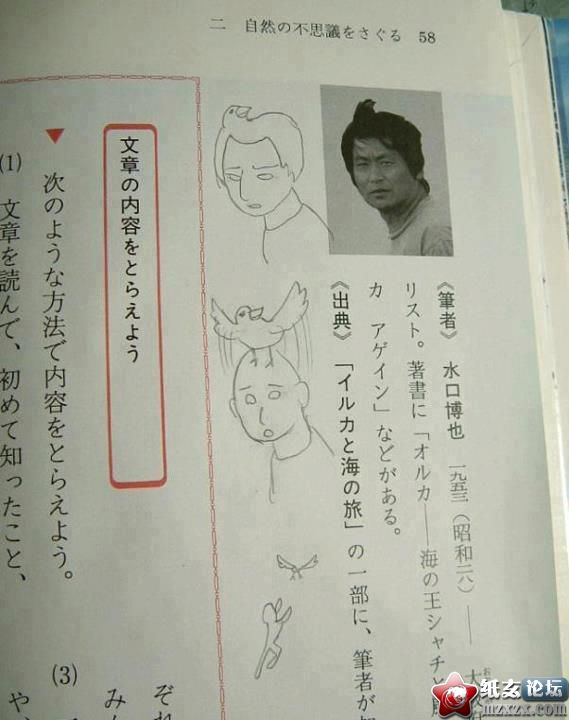 二 自然の不思議をさぐる 58
《筆者》 水口博也 一九五三（昭和二八）――大
リスト。著書に「オルカ――海の王シャチと
カ アゲイン」などがある。
《出典》 「イルカと海の旅」の一部に、筆者が
文章の内容をとらえよう
▼ 次のような方法で内容をとらえよう。
(1) 文章を読んで、初めて知ったこと、
(3)
ぞれ
みん
や、
纸友论坛
mzxzx.com